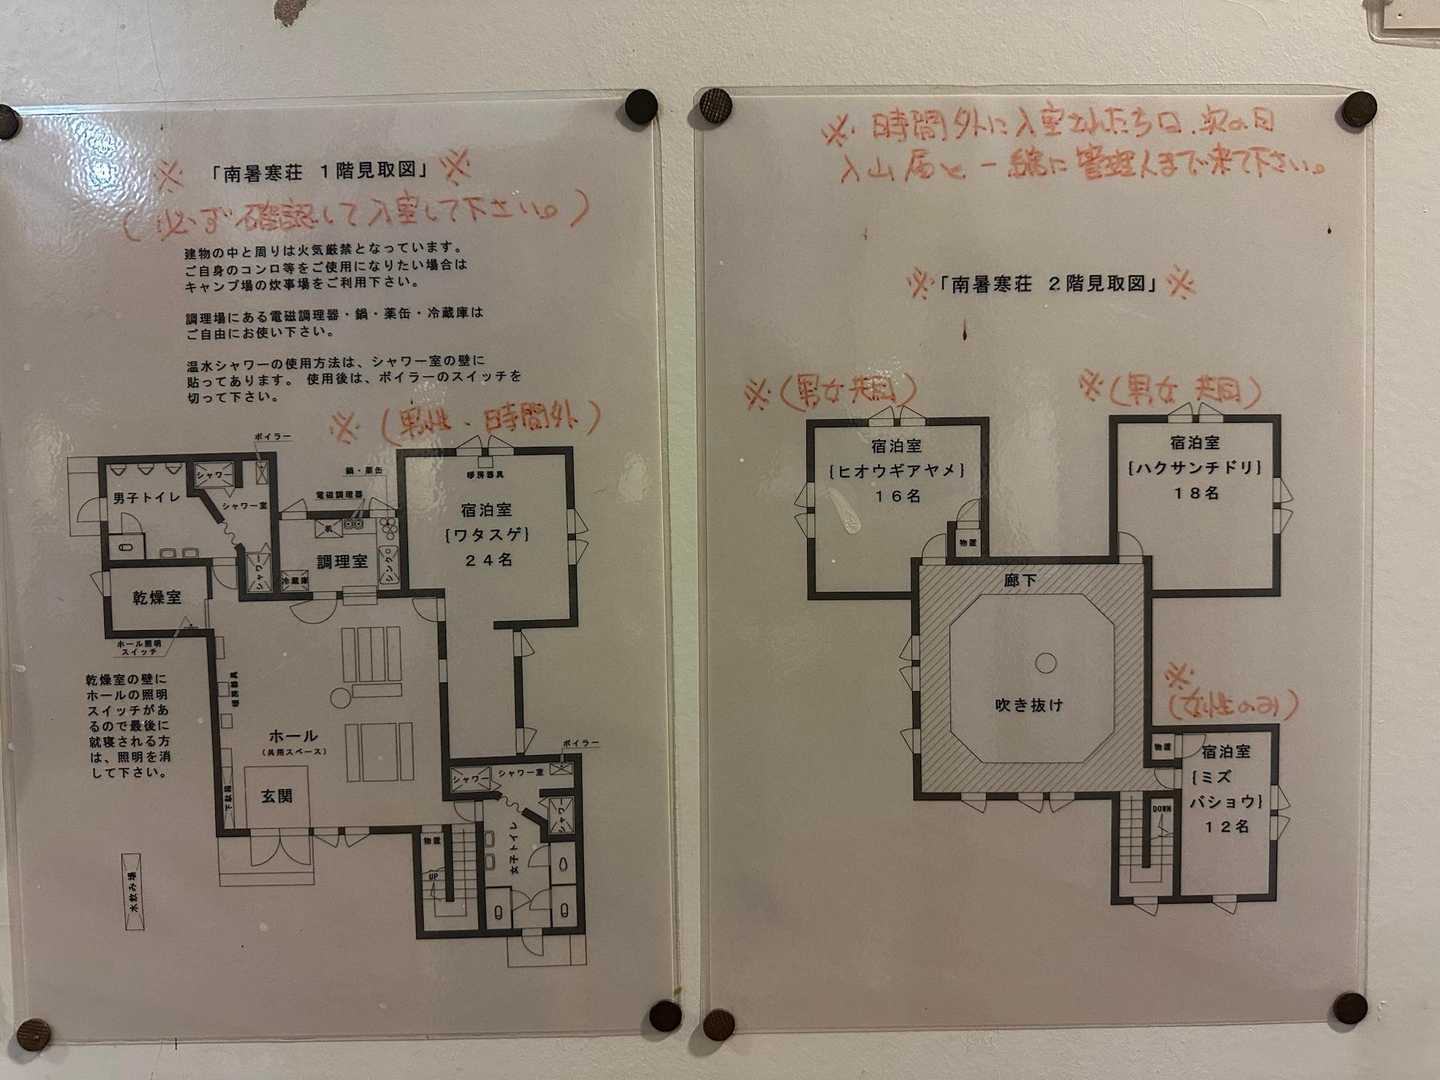 ※「南暑寒荘 1階見取図」※
(必ず確認して入室して下さい。)
建物の中と周りは火気厳禁となっています。
ご自身のコンロ等をご使用になりたい場合は
キャンプ場の炊事場をご利用下さい。
調理場にある電磁調理器・鍋・薬缶・冷蔵庫は
ご自由にお使い下さい。
温水シャワーの使用方法は、シャワー室の壁に
貼ってあります。 使用後は、ボイラーのスイッチを
切って下さい。
※(男性・時間外)
ボイラー
シャワー
男子トイレ
シャワー室
シャワー
鍋・薬缶
電磁調理器
机
調理室
冷蔵庫
シンク
暖房器具
宿泊室
{ワタスゲ}
24名
乾燥室
ホール照明
スイッチ
乾燥室の壁に
ホールの照明
スイッチがあ
るので最後に
就寝される方
は、照明を消
して下さい。
暖房器具
ホール
(共用スペース)
下駄箱
玄関
水飲み場
ボイラー
シャワー
シャワー室
シャワー
女子トイレ
物置
UP
※時間外に入室された方は、次の日
入山届と一緒に管理人まで来て下さい。
※「南暑寒荘 2階見取図」※
※(男女共同)
宿泊室
{ヒオウギアヤメ}
16名
物置
※(男女共同)
宿泊室
{ハクサンチドリ}
18名
廊下
吹き抜け
※
(女性のみ)
物置
宿泊室
{ミズ
バショウ}
12名
DOWN